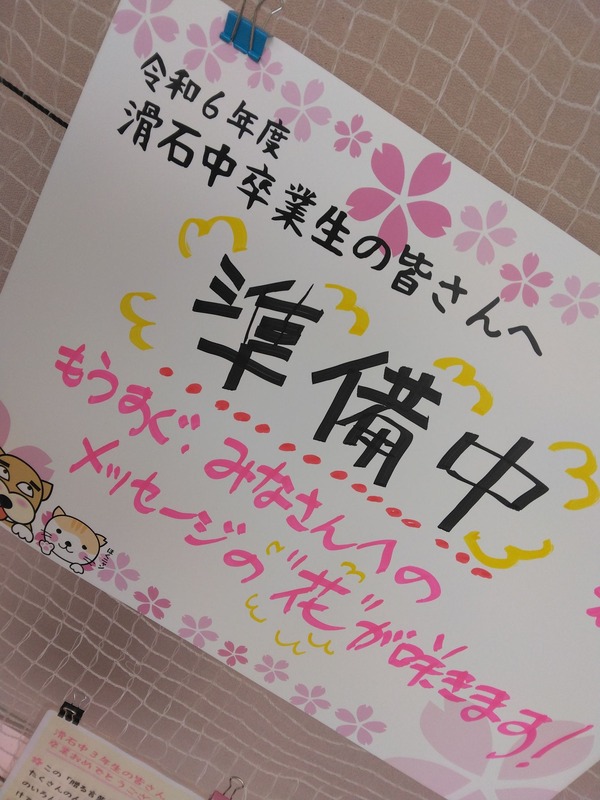 令和6年度
滑石中卒業生の皆さんへ
準備中
もうすぐ!みなさんへの
メッセージの"花"が咲きます!
滑石中3年生の皆さん
卒業おめでとうご